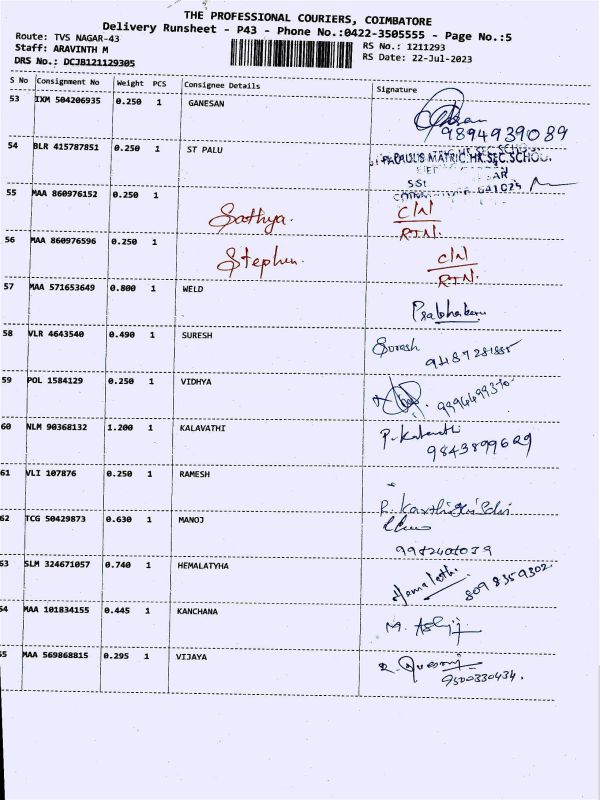 THE PROFESSIONAL COURIERS, COIMBATORE
Delivery Runsheet - P43 - Phone No.:0422-3505555 - Page No.:5
Route: TVS NAGAR-43 RS No.: 1211293
Staff: ARAVINTH M RS Date: 22-Jul-2023
DRS No.: DCJB121129305
S No Consignment No Weight PCS Consignee Details Signature
53 IXM 504206935 0.250 1 GANESAN
9894939089
54 BLR 415787851 0.250 1 ST PALU
MATRIC.HR.SEC.SCHOOL
641025
55 MAA 860976152 0.250 1 Sathya. C/N
RTN.
56 MAA 860976596 0.250 1 Stephen. C/N
RTN.
57 MAA 571653649 0.800 1 WELD
Prabhakaru
58 VLR 4643540 0.490 1 SURESH Suresh
9487281885
59 POL 1584129 0.250 1 VIDHYA
60 NLM 90368132 1.200 1 KALAVATHI P. Kalavathi
9843899629
61 VLI 107876 0.250 1 RAMESH
R. Karthigai Selvi
62 TCG 50429873 0.630 1 MANOJ
63 SLM 324671057 0.740 1 HEMALATYHA Hemalathi 8098359302
54 MAA 101834155 0.445 1 KANCHANA
55 MAA 569868815 0.295 1 VIJAYA
9500330434.